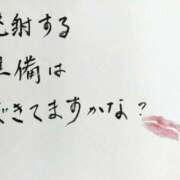 射する
準備は
できてますかな？